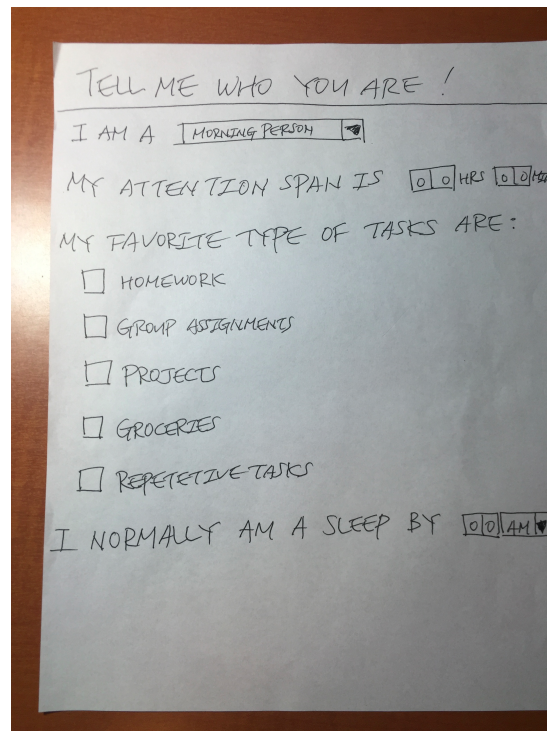 TELL ME WHO YOU ARE!
I AM A MORNING PERSON
MY ATTENTION SPAN IS 00 HRS 00
MY FAVORITE TYPE OF TASKS ARE:
HOMEWORK
GROUP ASSIGNMENTS
PROJECTS
GROCERIES
REPETETIVE TASKS
I NORMALLY AM A SLEEP BY 00 AM